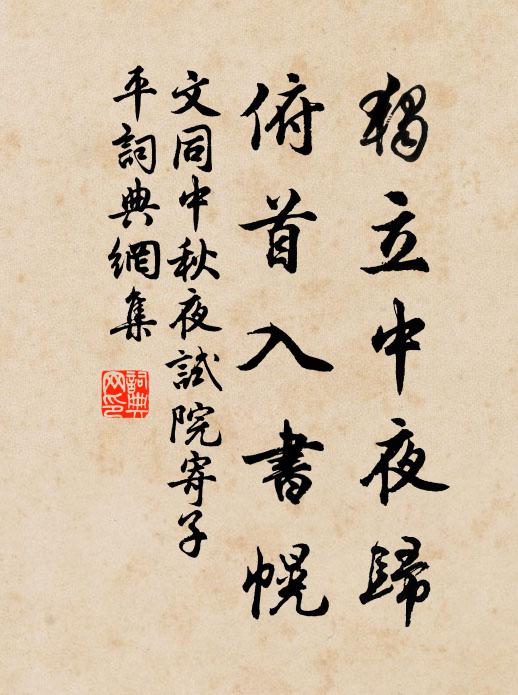 獨立中夜歸
俯首入書幌
文同中秋夜試院寄子
平詞典網集
詞典
网印